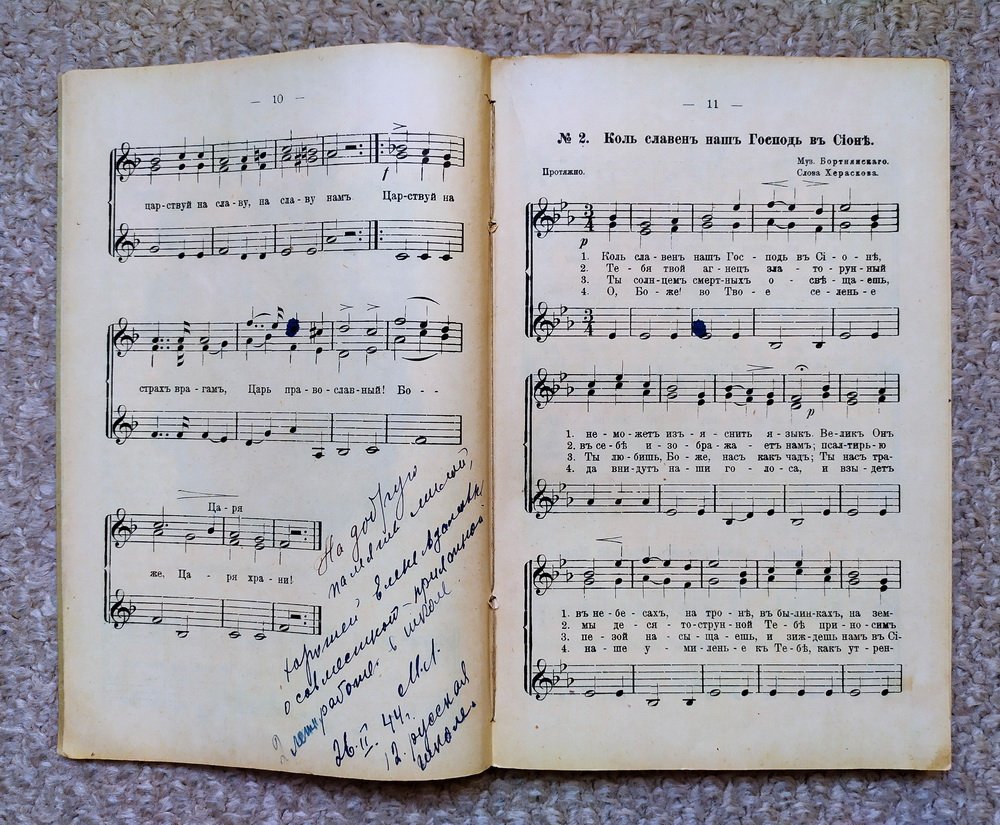 — 10 —
цар-ствуй на сла-ву, на сла-ву намъ Цар-ствуй на
f
страхъ вра-гамъ, Царь пра-во-слав-ный! Бо - -
Ца-ря
же, Ца - ря хра-ни!
На добрую
память милой,
хорошей Елене
о совместной
2 летн работе. в школе
26.II.44г. М.Л.
12 русская
школе.
— 11 —
№ 2. Коль славенъ нашъ Господь въ Сіонѣ.
Муз. Бортнянскаго.
Протяжно. Слова Хераскова.
p
1. Коль сла-венъ нашъ Гос - подь въ Сі - о - нѣ,
2. Те - бя твой аг-нецъ зла - то-рун-ный
3. Ты солн-цемъ смерт-ныхъ о - свѣ - ща-ешь,
4. О, Бо - же! во Тво - е се - лень - е
p
1. не - мо-жетъ изъ-я - снить я - зыкъ. Ве-ликъ Онъ
2. въ се - бѣ и - зо - бра - жа - етъ намъ; псал-тирь-ю
3. Ты лю-бишь, Бо - же, насъ какъ чадъ; Ты насъ тра-
4. да внид-утъ на - ши го - ло - са, и взы - детъ
1. въ не - бе - сахъ, на тро - нѣ, въ бы-лин-кахъ, на зем-
2. мы де - ся - то-струн-ной Те - бѣ при - но - симъ
3. пе - зой на - сы - ща - ешь, и зиж-дешь намъ въ Сі-
4. на - ше у - ми - лень-е къ Те - бѣ, какъ ут - рен-